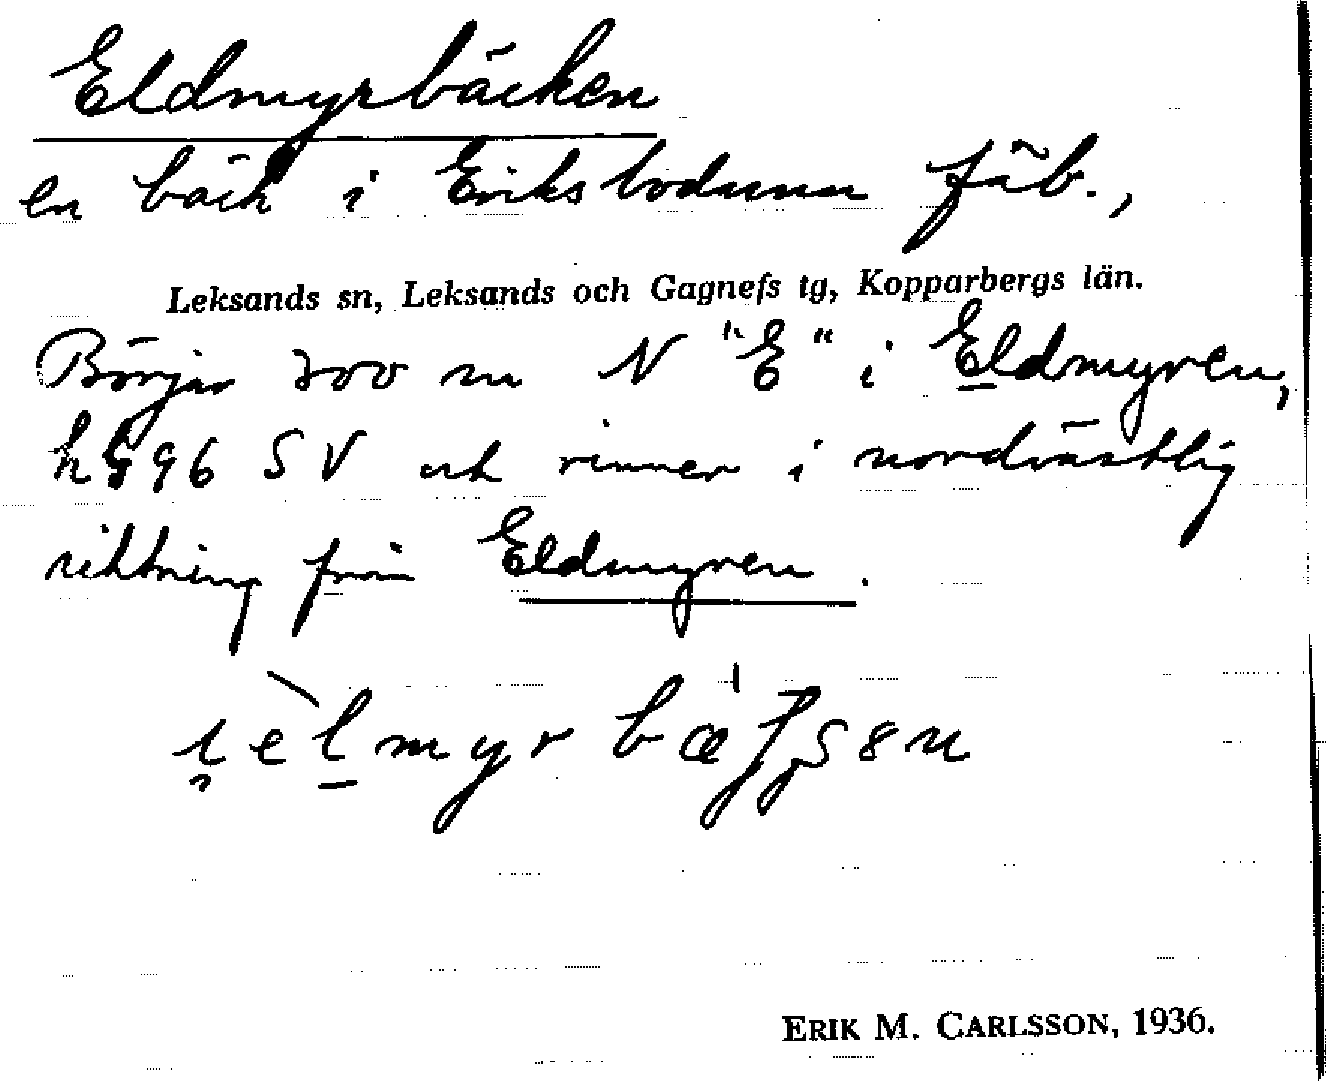 Eldmyrbäcken
en bäck i Eriksbodarna fäb.,
Leksands sn, Leksands och Gagnefs tg, Kopparbergs län.
Börjar 300 m N "E" i Eldmyren,
96 SV och rinner i nordvästlig
riktning från Eldmyren.
ERIK M. CARLSSON, 1936.